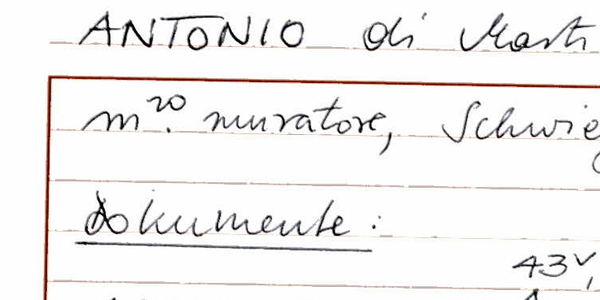 ANTONIO di Marti
m.ro muratore, Schwie
Dokumente:
43v,